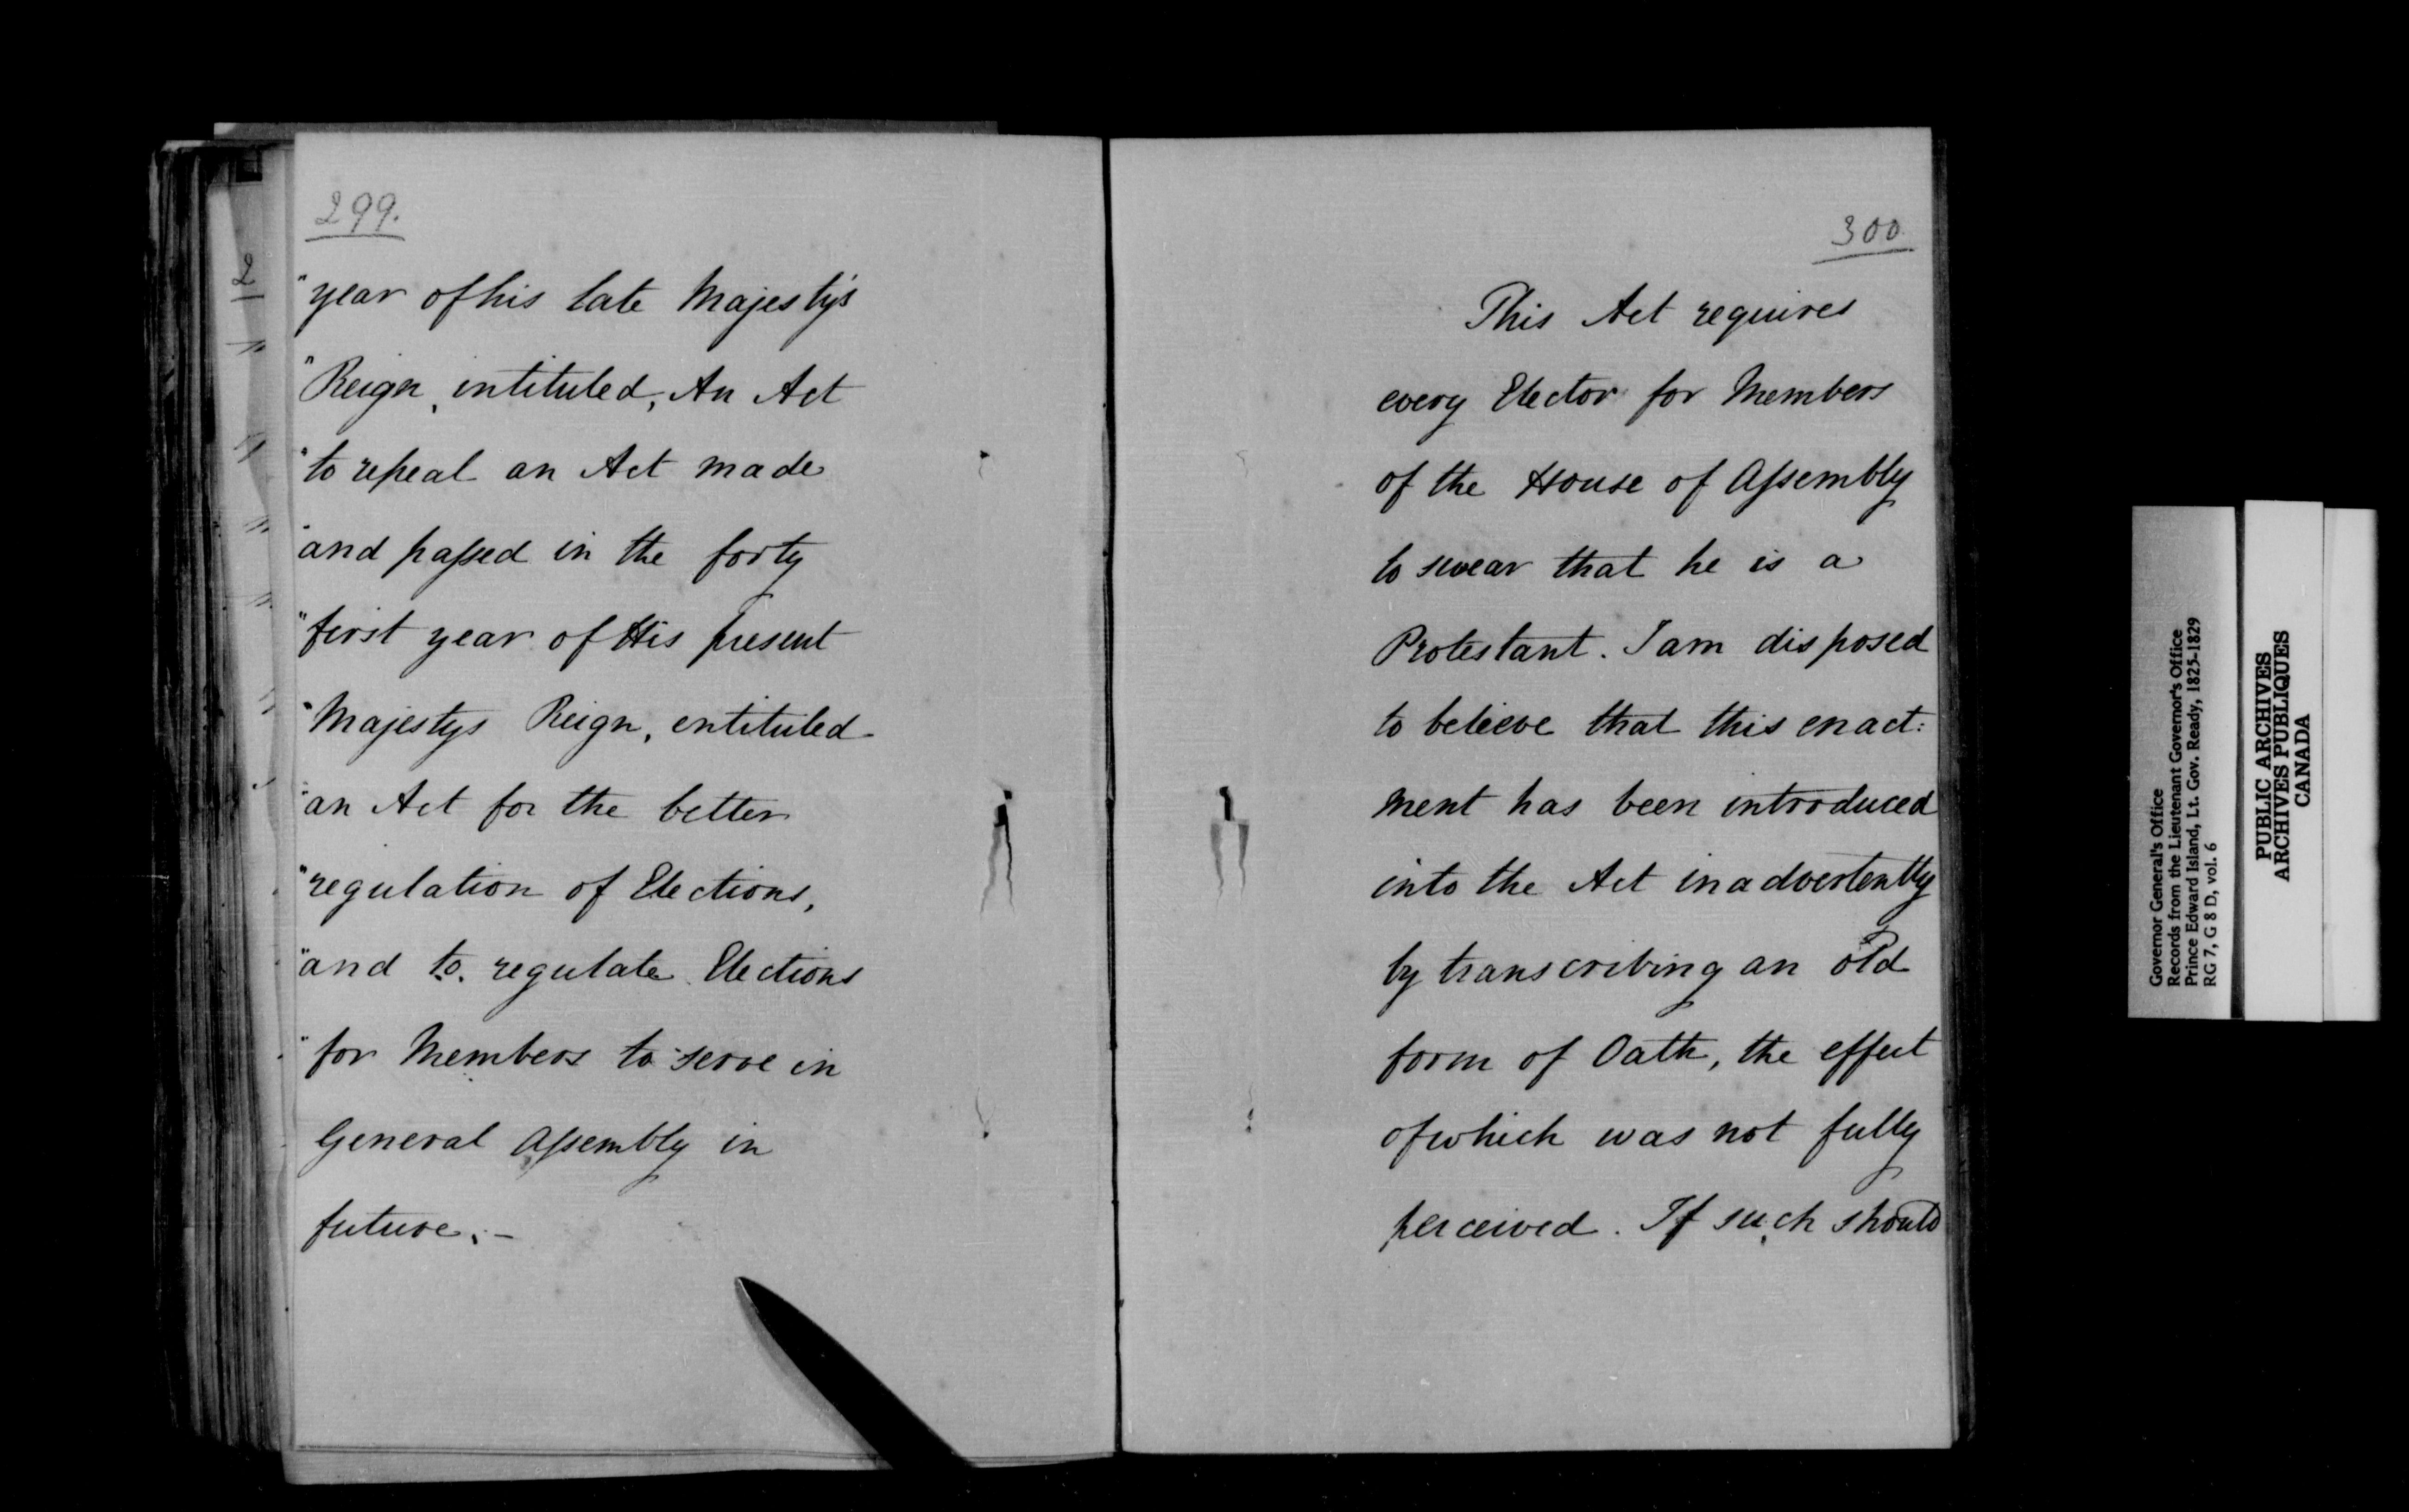 299.
"year of his late Majesty's
"Reign, intituled, An Act
"to repeal an Act made
"and passed in the forty
"first year of His present
"Majestys Reign, entituled
"an Act for the better
"regulation of Elections,
"and to regulate Elections
"for Members to serve in
General Assembly in
future. –
2
300
This Act requires
every Elector for Members
of the House of Assembly
to swear that he is a
Protestant. I am disposed
to believe that this enact:
ment has been introduced
into the Act inadvertently
by transcribing an old
form of Oath, the effect
of which was not fully
perceived. If such should
Governor General's Office
Records from the Lieutenant Governor's Office
Prince Edward Island, Lt. Gov. Ready, 1825-1829
RG 7, G 8 D, vol. 6
PUBLIC ARCHIVES
ARCHIVES PUBLIQUES
CANADA